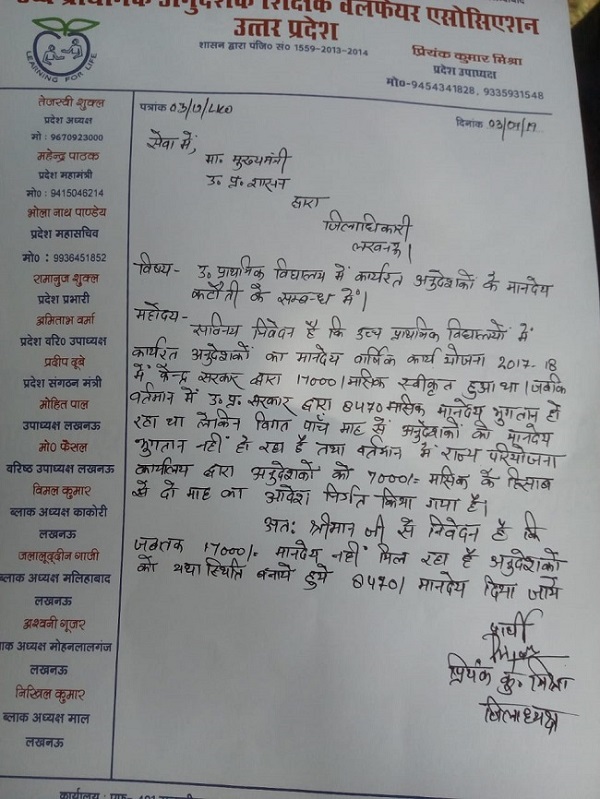 उच्च प्राथमिक अनुदेशक शिक्षक वेलफेयर एसोसिएशन
उत्तर प्रदेश
शासन द्वारा पंजि० सं० 1559-2013-2014
LEARNING FOR LIFE
प्रियंक कुमार मिश्रा
प्रदेश उपाध्यक्ष
मो०-9454341828, 9335931548
तेजस्वी शुक्ल
प्रदेश अध्यक्ष
मो : 9670923000
महेन्द्र पाठक
प्रदेश महामंत्री
मो० : 9415046214
भोला नाथ पाण्डेय
प्रदेश महासचिव
मो० : 9936451852
रामानुज शुक्ल
प्रदेश प्रभारी
अमिताभ वर्मा
प्रदेश वरि० उपाध्यक्ष
प्रदीप दूबे
प्रदेश संगठन मंत्री
मोहित पाल
उपाध्यक्ष लखनऊ
मो० फैसल
वरिष्ठ उपाध्यक्ष लखनऊ
विमल कुमार
ब्लाक अध्यक्ष काकोरी
लखनऊ
जलालूद्दीन गाजी
ब्लाक अध्यक्ष मलिहाबाद
लखनऊ
अश्वनी गूजर
ब्लाक अध्यक्ष मोहनलालगंज
लखनऊ
निखिल कुमार
ब्लाक अध्यक्ष माल
लखनऊ
पत्रांक 03/19/LKO
दिनांक 03/01/19
सेवा में,
मा. मुख्यमंत्री
उ. प्र. शासन
द्वारा
जिलाधिकारी
लखनऊ।
विषय- उ. प्राथमिक विद्यालय में कार्यरत अनुदेशकों के मानदेय
कटौती के सम्बन्ध में।
महोदय-
सविनय निवेदन है कि उच्च प्राथमिक विद्यालयों में
कार्यरत अनुदेशकों का मानदेय वार्षिक कार्य योजना 2017-18
में केन्द्र सरकार द्वारा 17000/ मासिक स्वीकृत हुआ था। जबकि
वर्तमान में उ. प्र. सरकार द्वारा 8470 मासिक मानदेय भुगतान हो
रहा था लेकिन विगत पाँच माह से अनुदेशकों को मानदेय
भुगतान नहीं हो रहा है तथा वर्तमान में राज्य परियोजना
कार्यालय द्वारा अनुदेशकों को 7000/- मासिक के हिसाब
से दो माह का आदेश निर्गत किया गया है।
अतः श्रीमान जी से निवेदन है कि
जबतक 17000/- मानदेय नहीं मिल रहा है अनुदेशकों
को यथास्थिति बनाये हुये 8470/ मानदेय दिया जाये
प्रार्थी
प्रियंक कु. मिश्रा
जिलाध्यक्ष